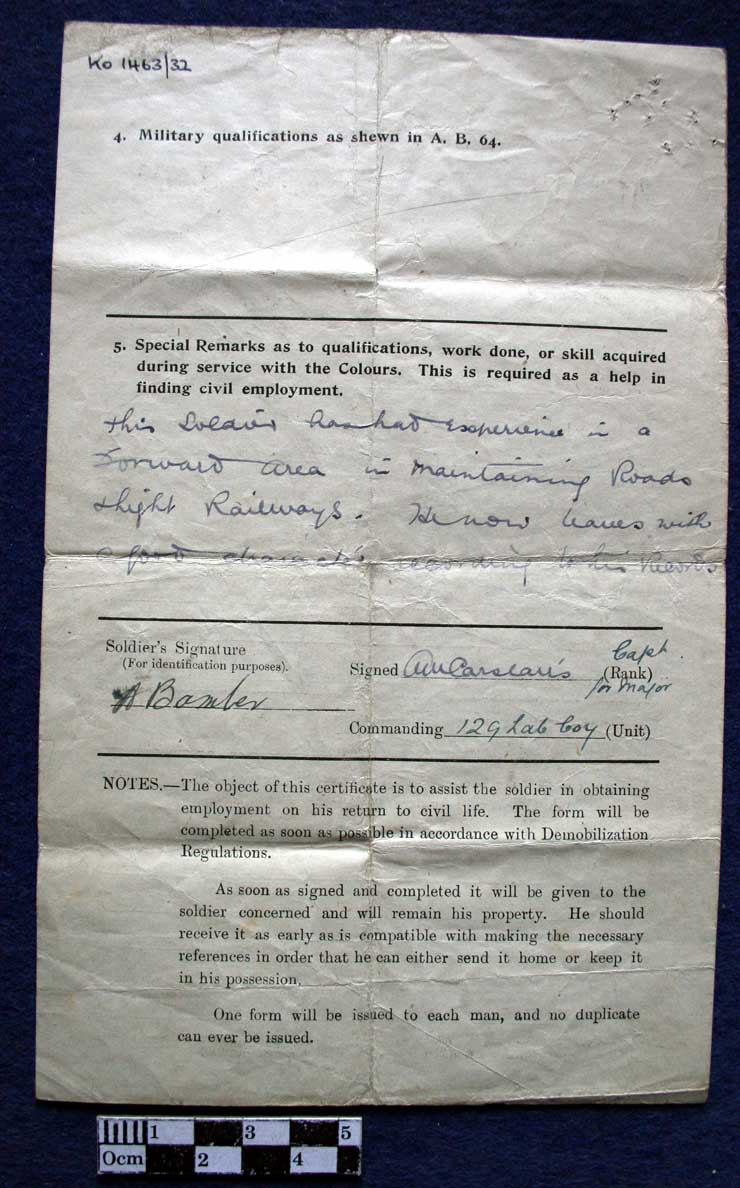 Ko 1463/32
4. Military qualifications as shewn in A. B. 64.
5. Special Remarks as to qualifications, work done, or skill acquired
during service with the Colours. This is required as a help in
finding civil employment.
This Soldier has had experience in a
Forward area in maintaining Roads
& Light Railways. He now leaves with
a good character according to his Records
Soldier's Signature
(For identification purposes).
A Bamber
Signed
Capt
(Rank)
for Major
Commanding 129 Lab Coy (Unit)
NOTES.—The object of this certificate is to assist the soldier in obtaining
employment on his return to civil life. The form will be
completed as soon as possible in accordance with Demobilization
Regulations.
As soon as signed and completed it will be given to the
soldier concerned and will remain his property. He should
receive it as early as is compatible with making the necessary
references in order that he can either send it home or keep it
in his possession.
One form will be issued to each man, and no duplicate
can ever be issued.
1 3 5
0cm 2 4